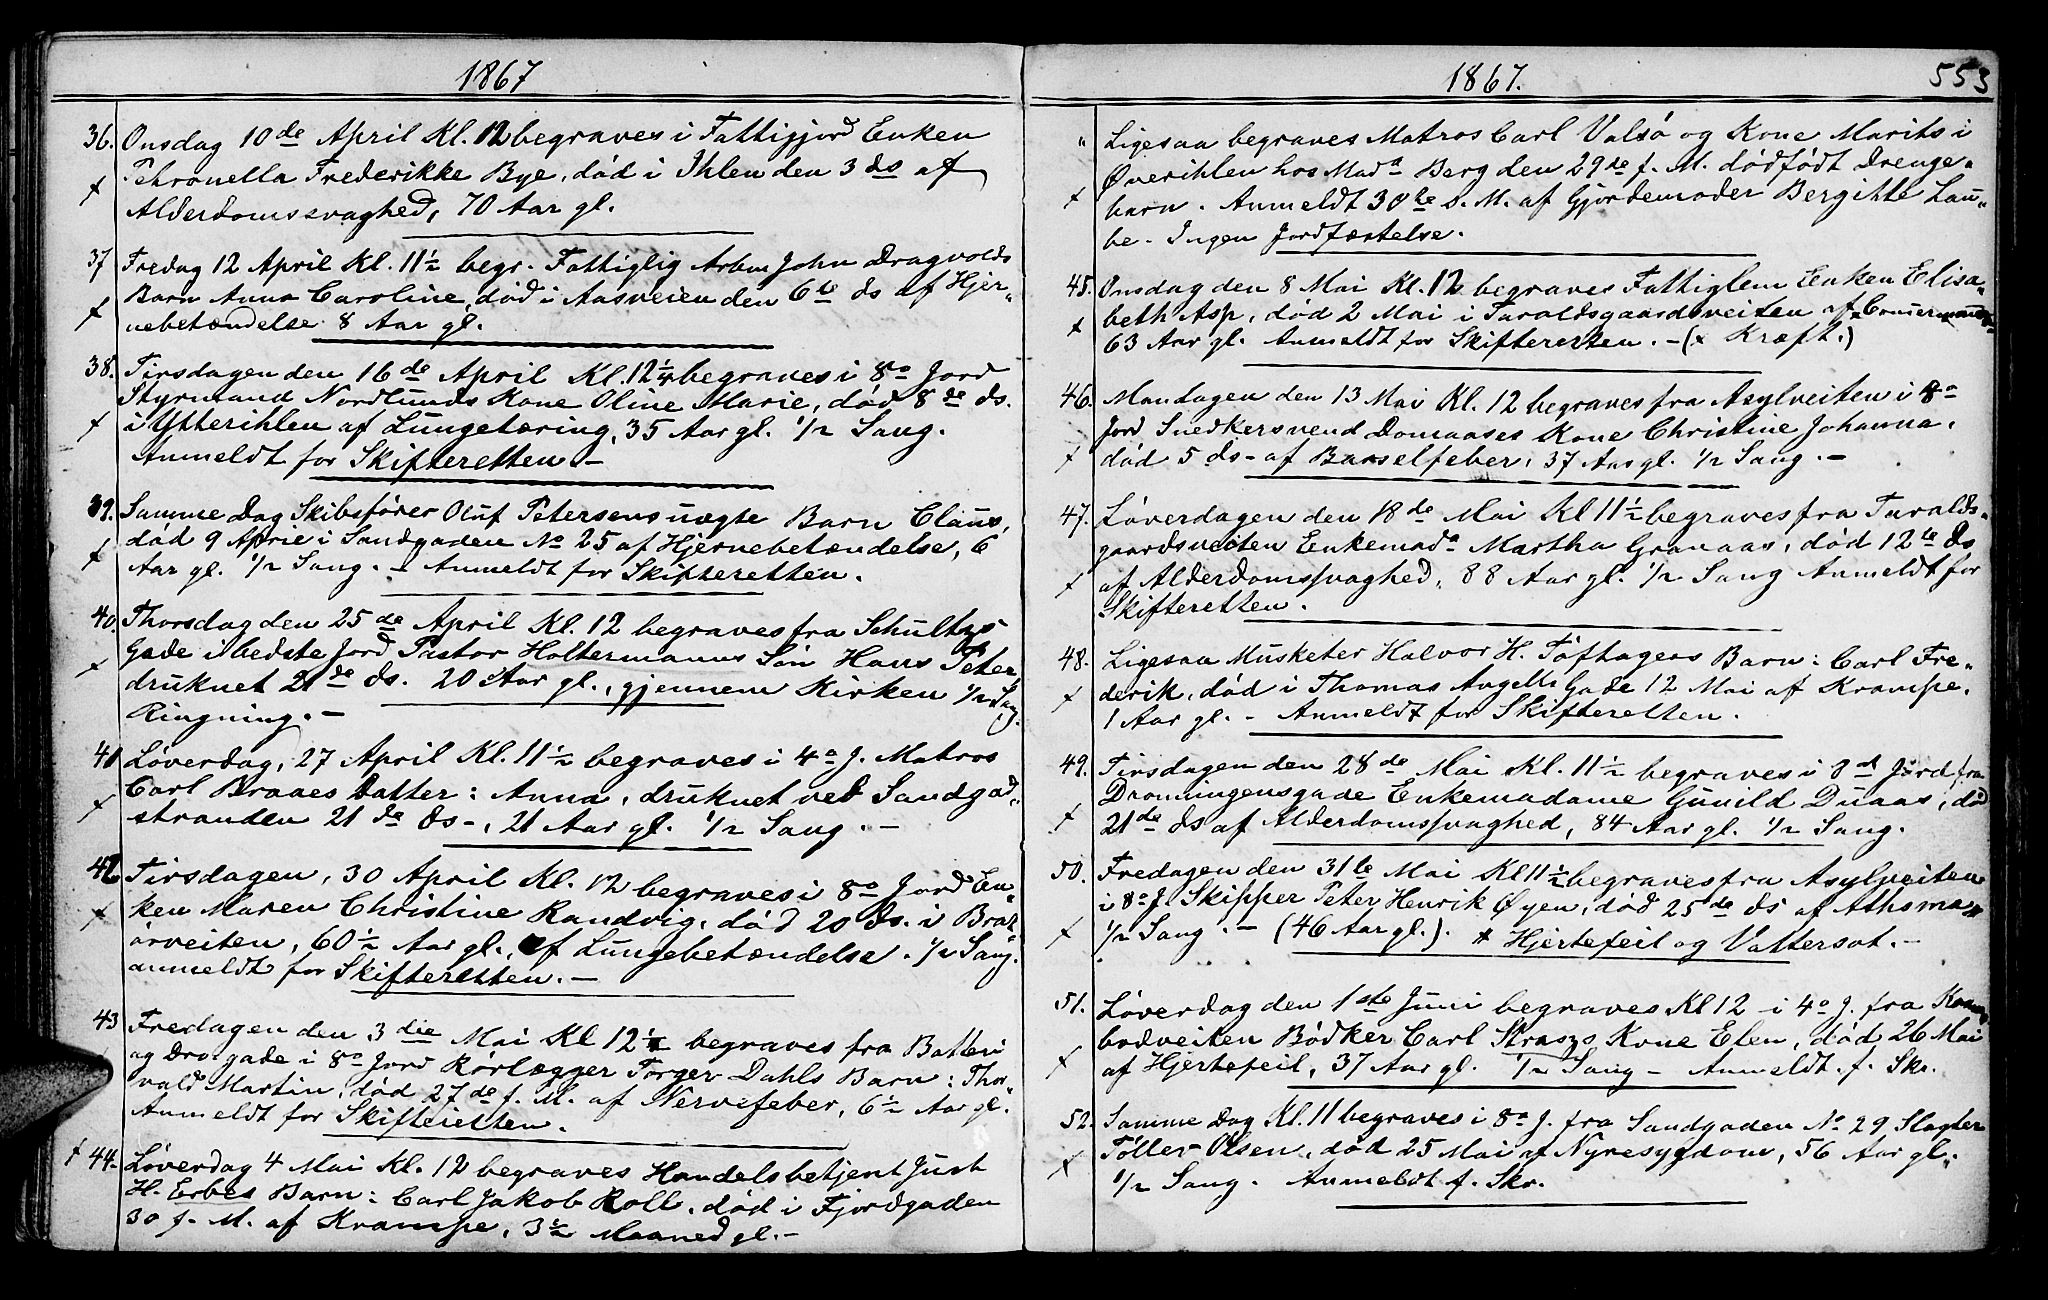 1867
36. Onsdag 10de April Kl. 12 begraves i Fattigjord Enken
Petronella Frederikke Bye, død i Ihlen den 3 ds af
Alderdomssvaghed, 70 Aar gl.
37 Fredag 12 April Kl. 11½ begr. Fattiglig Arbm John Dragvolds
Barn Anna Caroline, død i Aasveien den 6te ds af Hjer-
nebetændelse 8 Aar gl.
38. Tirsdagen den 16de April Kl. 12¼ begraves i 8o Jord
Styrmand Nordlunds Kone Oline Marie, død 8de ds.
i Ytterihlen af Lungetæring, 35 Aar gl. ½ Sang.
Anmeldt for Skifteretten.-
39. Samme Dag Skibsfører Oluf Petersens uægte Barn Claus,
død 9 April i Sandgaden No 25 af Hjernebetændelse, 6
Aar gl. ½ Sang. - Anmeldt for Skifteretten.
40. Thorsdag den 25de April Kl. 12 begraves fra Schultz's
Gade i bedste Jord Pastor Holtermanns Søn Hans Peter,
druknet 21de ds. 20 Aar gl., gjennem Kirken ½ Sang.
Ringning.-
41 Løverdag, 27 April Kl. 11½ begraves i 4o J. Matros
Carl Braaes Datter: Anna, druknet ved Sandgad-
stranden 21de ds-, 21 Aar gl. ½ Sang.-
42 Tirsdagen, 30 April Kl. 12 begraves i 8o Jord En-
ken Maren Christine Randvig, død 20 ds. i Brat-
ørveiten, 60½ Aar gl., af Lungebetændelse. ½ Sang.
anmeldt for Skifteretten.-
43 Fredagen den 3die Mai Kl 12¼ begraves fra Batteri
og Drorgade i 8o Jord Rørlægger Torger Dahls Barn: Thor-
vald Martin, død 27de f. M. af Nervefeber, 6½ Aar gl.
Anmeldt for Skifteretten.
44. Løverdag 4 Mai Kl. 12 begraves Handelsbetjent Just
H. Erbes Barn: Carl Jakob Roll, død i Fjordgaden
30 f. M. af Krampe, 3½ Maaned gl.-
1867. 553
" Ligesaa begraves Matros Carl Valsø og Kone Marits i
Øverihlen hos Mada Berg den 29de f. M. dødfødt Drenge-
barn. Anmeldt 30te s. M. af Gjordemoder Bergitte Lau-
be. Ingen Jordfæstelse.
45. Onsdag den 8 Mai Kl. 12 begraves Fattiglem Enken Elisa-
beth Asp, død 2 Mai i Taraldsgaardsveiten af
63 Aar gl. Anmeldt for Skifteretten. - (x Kræft.)
46. Mandagen den 13 Mai Kl. 12 begraves fra Asylveiten i 8o
Jord Snedkersvend Domaases Kone Christine Johanna,
død 5 ds- af Barselfeber, 37 Aar gl. ½ Sang.-
47. Løverdagen den 18de Mai Kl 11½ begraves fra Taralds-
gaardsveiten Enkemada Martha Granaas, død 12te ds
af Alderdomssvaghed, 88 Aar gl. ½ Sang Anmeldt for
Skifteretten.
48. Ligesaa Musketer Halvor H. Tøftagers Barn: Carl Fre-
derik, død i Thomas Angells Gade 12 Mai af Krampe,
1 Aar gl. - Anmeldt for Skifteretten.
49. Tirsdagen den 28de Mai Kl. 11½ begraves i 8d Jord fra
Dronningensgade Enkemadame Gunild Duaas, død
21de ds af Alderdomssvaghed, 84 Aar gl. ½ Sang.
50. Fredagen den 31te Mai Kl 11½ begraves fra Asylveiten
i 8o J. Skipper Peter Henrik Øyen, død 25de ds af Athsma x
½ Sang. - (46 Aar gl.). x Hjertefeil og Vattersot.-
51. Løverdag den 1ste Juni begraves Kl 12 i 4o J. fra Kram-
bodveiten Bødker Carl Straszs Kone Elen, død 26 Mai
af Hjertefeil, 37 Aar gl. ½ Sang - Anmeldt. f. Skr.
52. Samme Dag Kl. 11 begraves i 8o J. fra Sandgaden No 29 Slagter
Tøller Olsen, død 25 Mai af Nyresygdom, 56 Aar gl.
½ Sang. Anmeldt f. Skr.